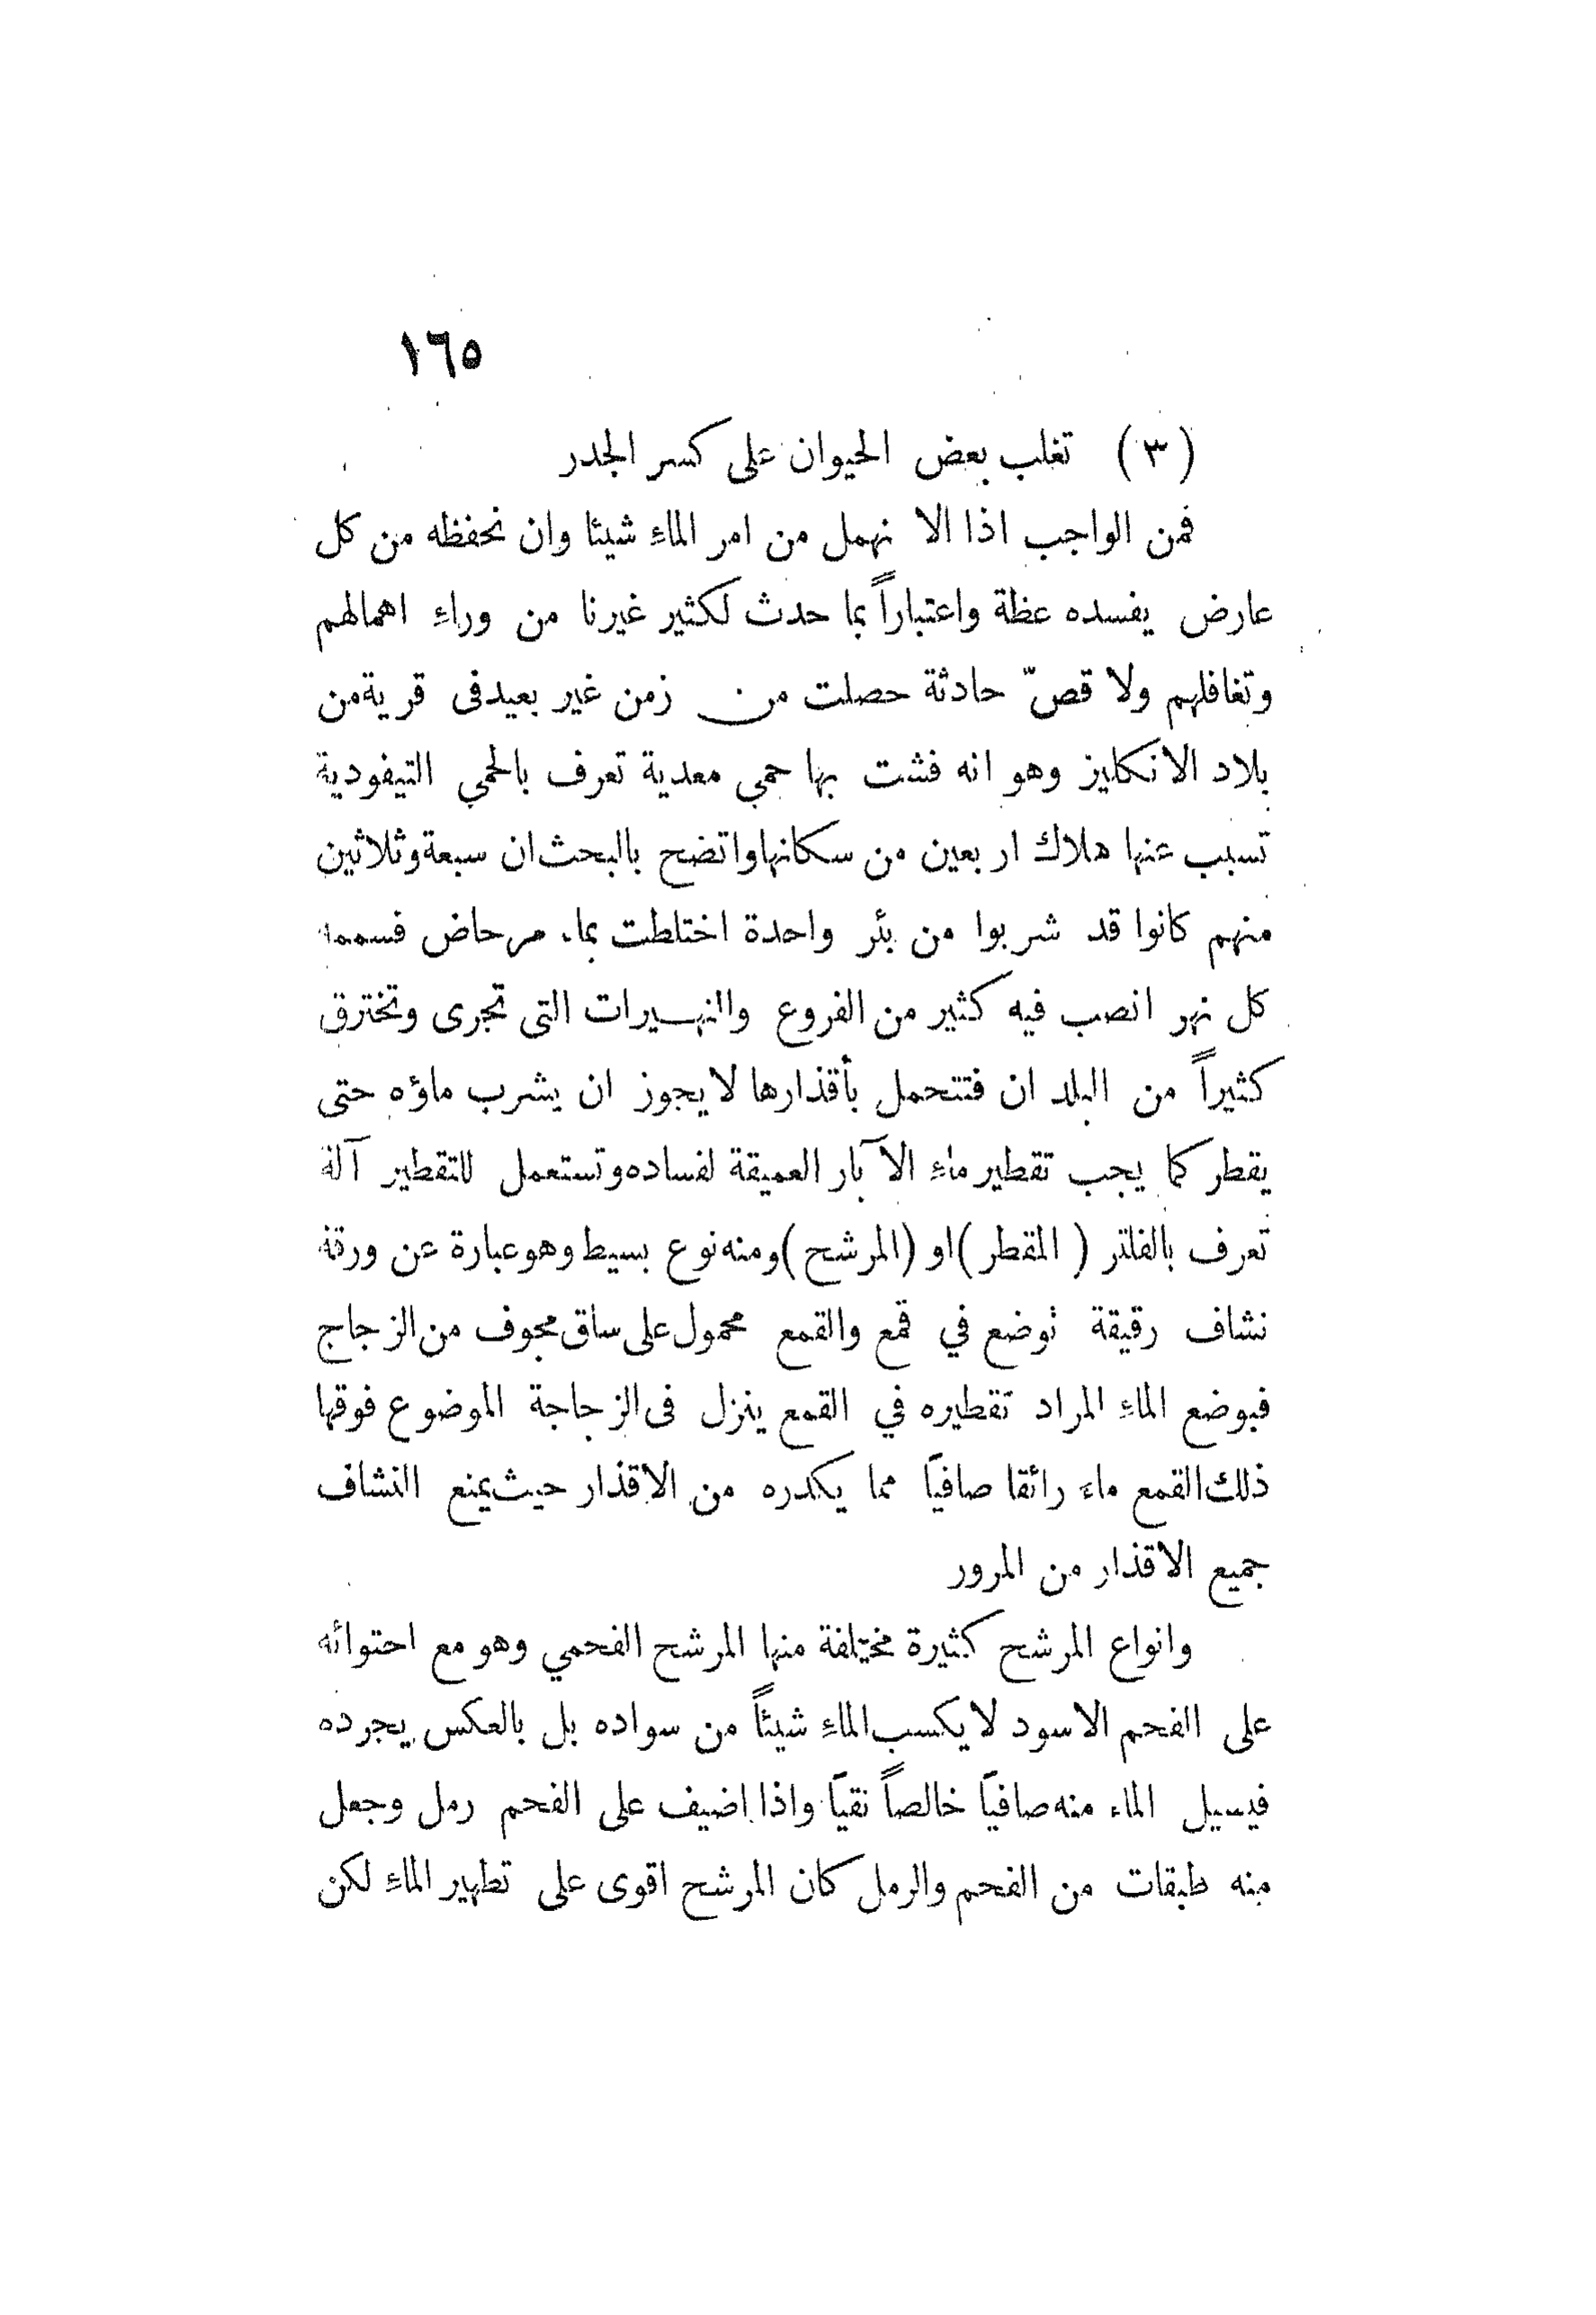 ١٦٥
(٣) تغلب بعض الحيوان على كسر الجدر
فمن الواجب اذا الا نهمل من امر الماءِ شيئا وان نحفظه من كل
عارض يفسده عظة واعتباراً بما حدث لكثير غيرنا من وراءِ اهمالهم
وتغافلهم ولا قصّ حادثة حصلت من زمن غير بعيد فى قرية من
بلاد الانكليز وهو انه فشت بها حمي معدية تعرف بالحمي التيفودية
تسبب عنها هلاك اربعين من سكانها واتضح بالبحث ان سبعة وثلاثين
منهم كانوا قد شربوا من بئر واحدة اختلطت بماء مرحاض فسممها
كل نهر انصب فيه كثير من الفروع والنهيرات التى تجرى وتخترق
كثيراً من البلد ان فتتحمل بأقذارها لا يجوز ان يشرب ماؤه حتى
يقطر كما يجب تقطير ماءِ الآبار العميقة لفساده وتستعمل للتقطير آلة
تعرف بالفلتر (المقطر) او (المرشح) ومنه نوع بسيط وهو عبارة عن ورقة
نشاف رقيقة توضع في قمع والقمع محمول على ساق مجوف من الزجاج
فبوضع الماءِ المراد تقطيره في القمع ينزل فى الزجاجة الموضوع فوقها
ذلك القمع ماء رائقا صافيًا مما يكدره من الاقذار حيث يمنع النشاف
جميع الاقذار من المرور
وانواع المرشح كثيرة مختلفة منها المرشح الفحمي وهو مع احتوائه
على الفحم الاسود لا يكسب الماءِ شيئاً من سواده بل بالعكس يجرده
فيسيل الماء منه صافيًا خالصاً نقيًا واذا اضيف على الفحم رمل وجعل
منه طبقات من الفحم والرمل كان المرشح اقوى على تطهير الماءِ لكن